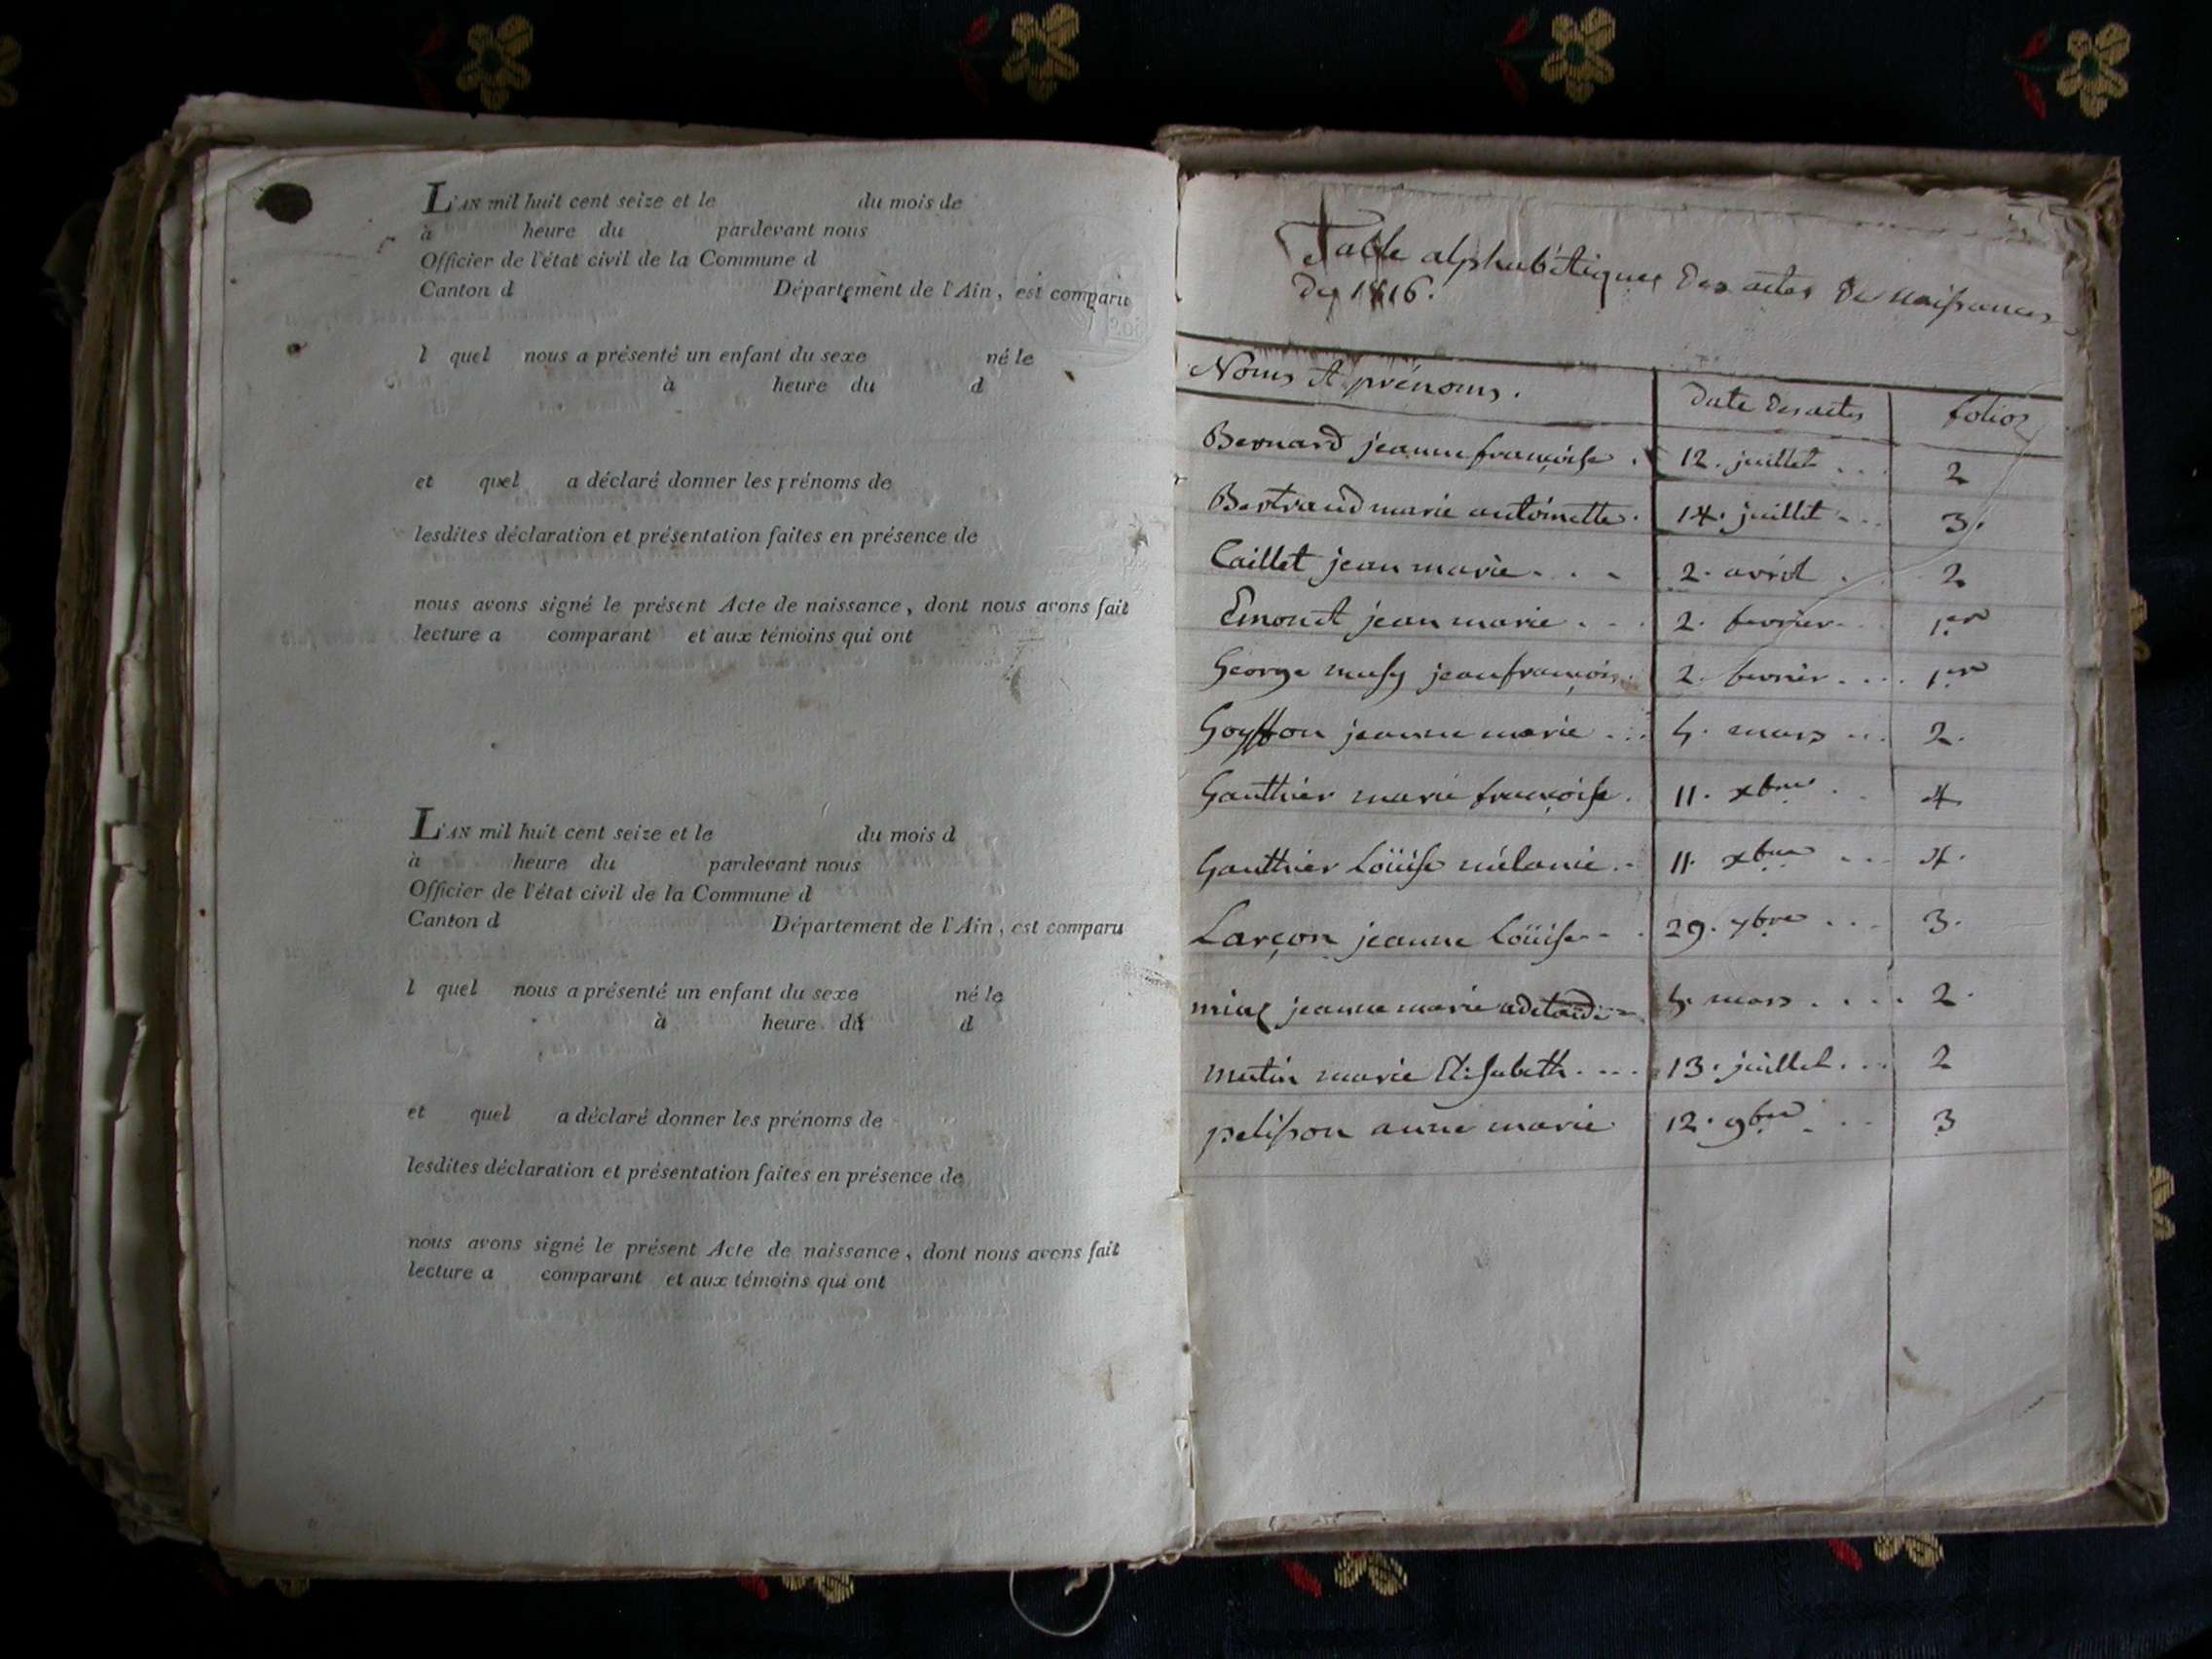 L'AN mil huit cent seize et le du mois de
à heure du pardevant nous
Officier de l'état civil de la Commune d
Canton d Département de l'Ain, est comparu
l quel nous a présenté un enfant du sexe né le
à heure du d
et quel a déclaré donner les prénoms de
lesdites déclaration et présentation faites en présence de
nous avons signé le présent Acte de naissance, dont nous avons fait
lecture a comparant et aux témoins qui ont
L'AN mil huit cent seize et le du mois d
à heure du pardevant nous
Officier de l'état civil de la Commune d
Canton d Département de l'Ain, est comparu
l quel nous a présenté un enfant du sexe né le
à heure du d
et quel a déclaré donner les prénoms de
lesdites déclaration et présentation faites en présence de
nous avons signé le présent Acte de naissance, dont nous avons fait
lecture a comparant et aux témoins qui ont
Table alphabétiques des actes de naissances
de 1816.
Noms et prénoms. date des actes folios
Bernard jeanne françoise. 12. juillet... 2
Bertrand marie antoinette. 14. juillet... 3.
Caillet jean marie... 2. avril. 2
Emonet jean marie... 2. fevrier... 1er
George jean françois. 2. fevrier.... 1er
Goyffon jeanne marie... 4. mars... 2.
Gauthier marie françoise. 11. xbre.. 4
Gauthier Loüise mélanie.. 11. xbre... 4.
Larçon jeanne Loüise.. 29. 7bre... 3.
jeanne marie adelaïde 4. mars.... 2.
mutin marie Elisabeth.... 13. juillet... 2
pelisson anne marie 12. 9bre... 3